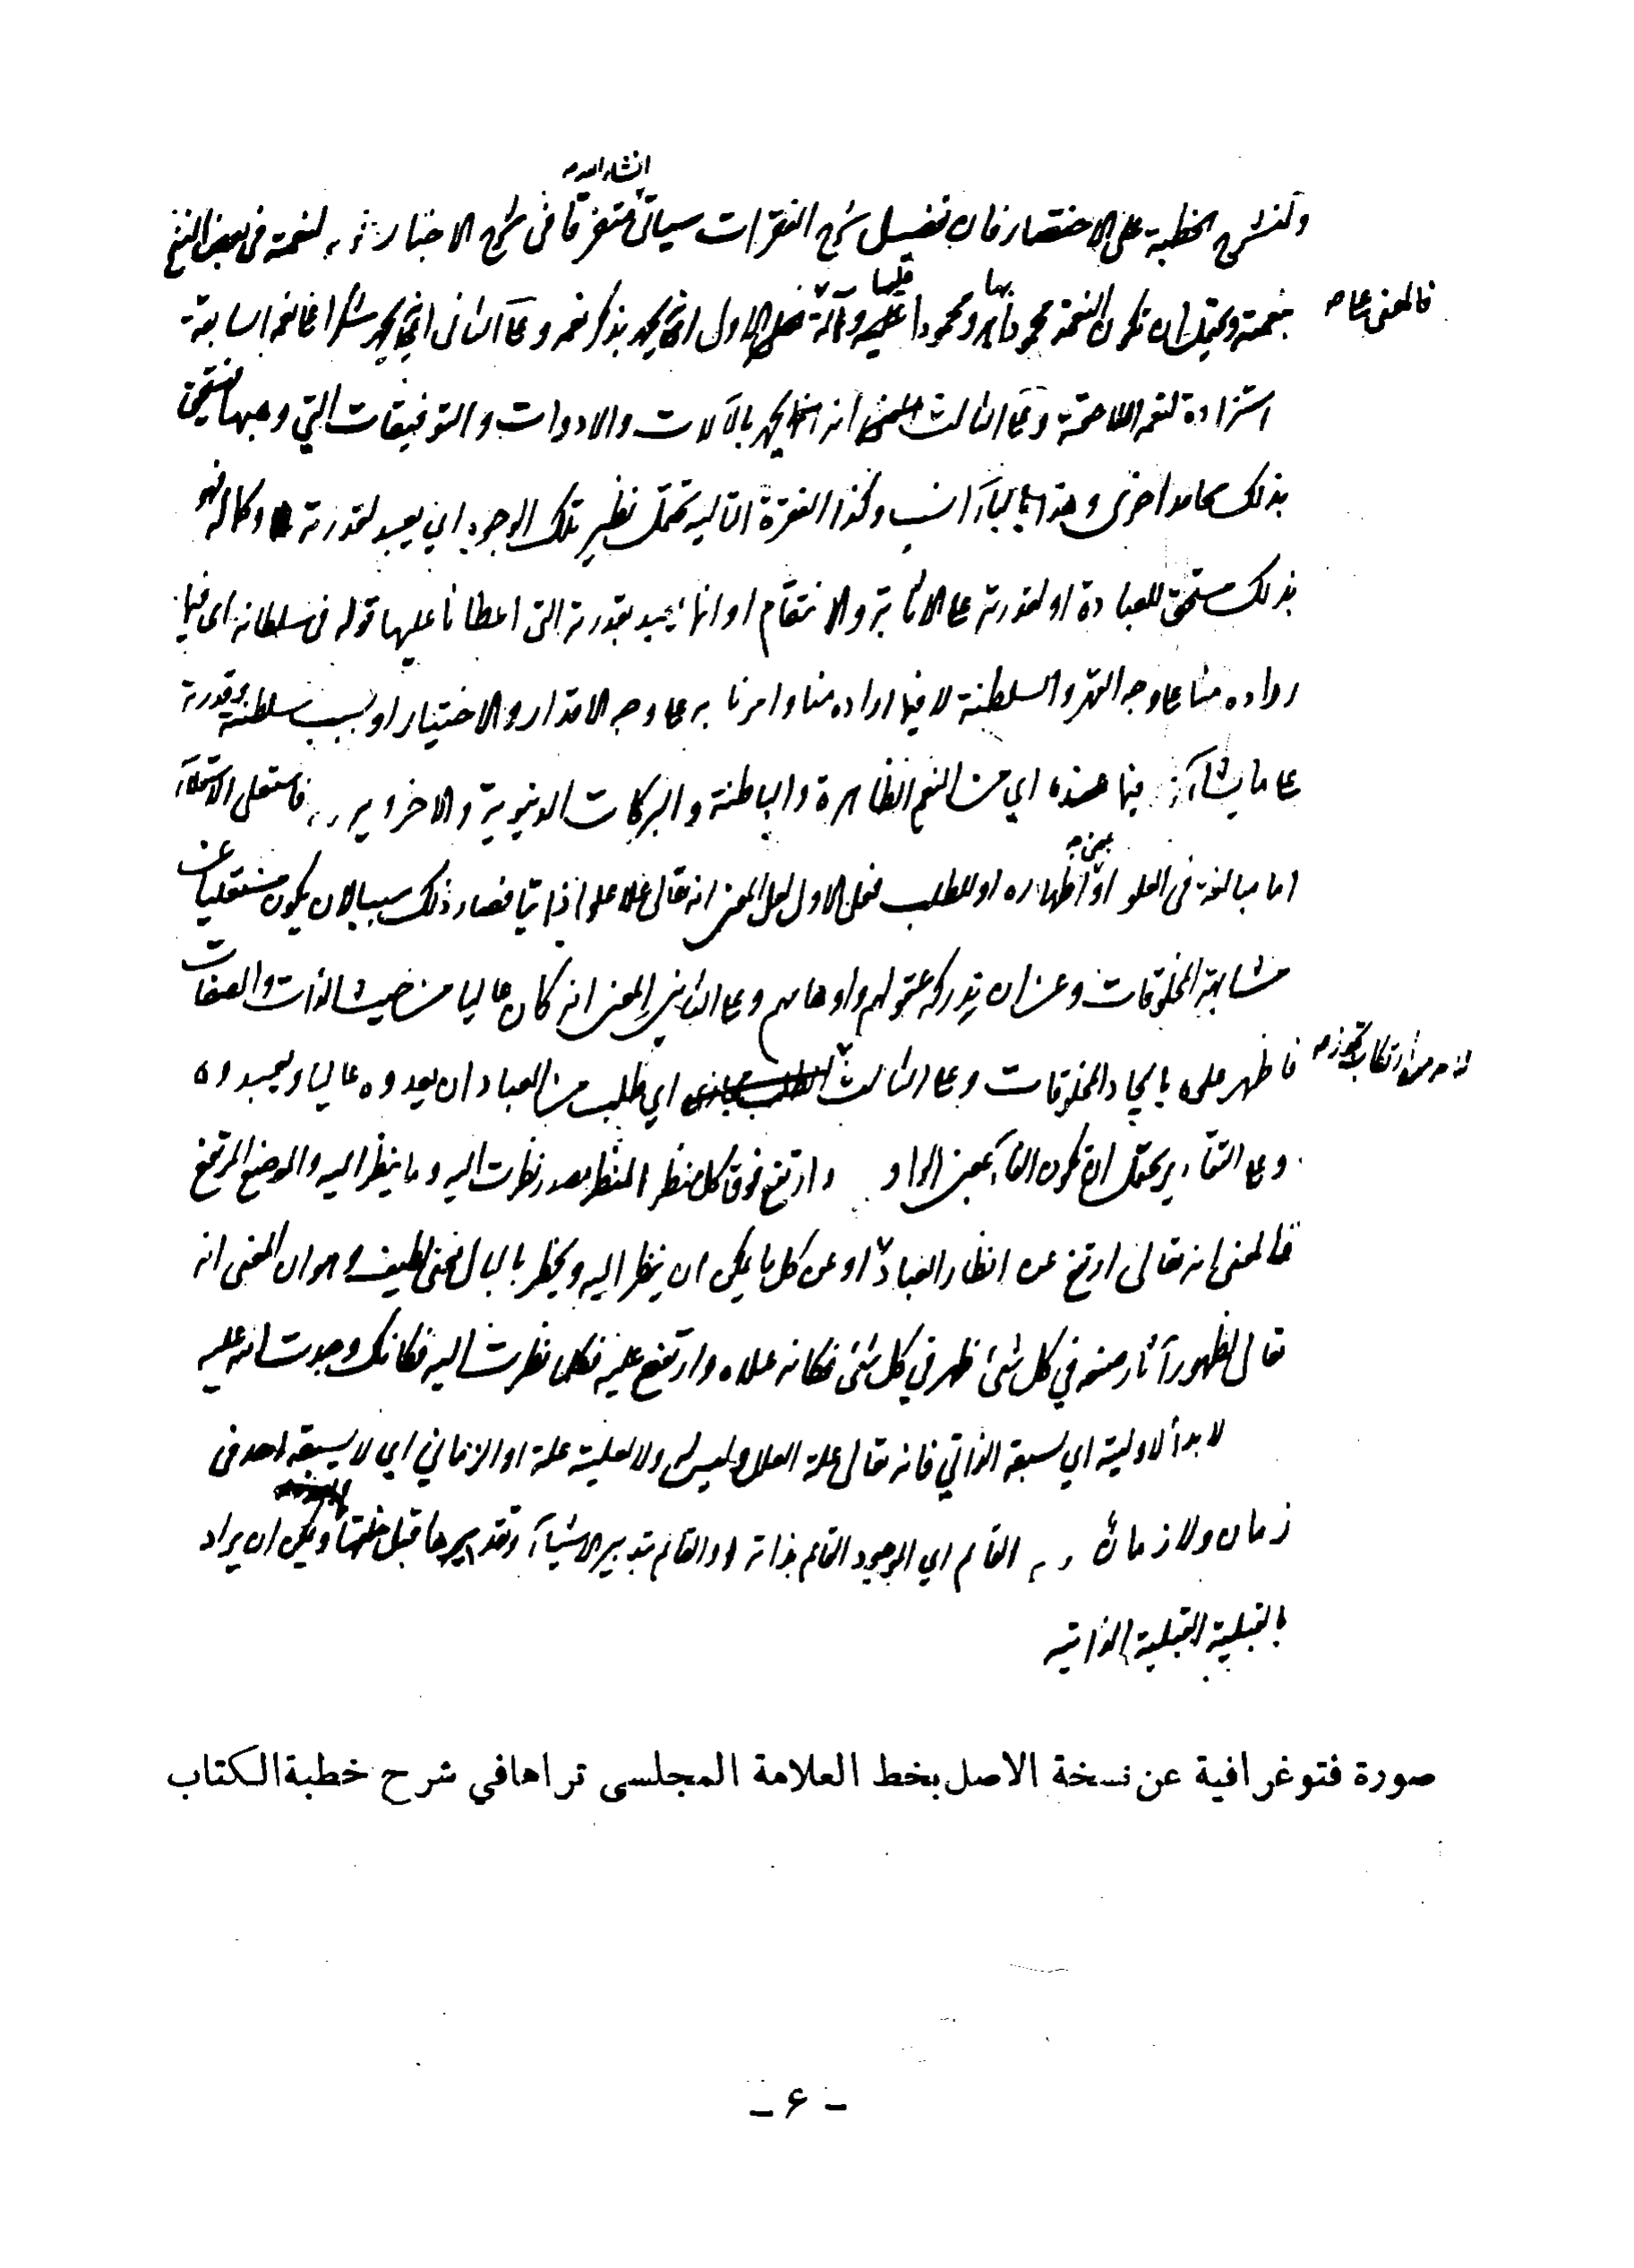 انشاء الله
ولنشرح الخطبة على الاختصار فان تفصيل شرح الفقرات سيأتي متفرقا في شرح الاخبار لنعمه في بعض النسخ
فالمعنى على
بها
بنعمته ويحتمل ان تكون النعمة محمودا بها ومحمودا عليها وآلة فعلى الاول يحمد بذكر نعمه وعلى الثاني يحمد شكرا على نعمه السابقة
استزادة لنعمه اللاحقة وعلى الثالث انه يحمد بالآلات والادوات والتوفيقات التي وهبها فيستحق
بذلك محامد اخرى وهذا بالباء انسب وكذا الفقرة التالية تحتمل نظير تلك الوجوه اي يعبد لقدرته وكماله فهو
بذلك مستحق للعبادة او لقدرته على الاثابة والانتقام او انما يعبد بقدرته التي اعطانا عليها قوله في سلطانه اي فيما
اراده منا على وجه القهر والسلطنة لا فيما اراده منا وامرنا به على وجه الاقدار والاختيار او بسبب سلطنته وقدرته
على ما يشاء فيما عنده اي من النعم الظاهرة والباطنة والبركات الدنيوية والاخروية فاستعلى الاستعلاء
اما مبالغة في العلو او بمعنى اظهاره او للطلب فعلى الاول لعل المعنى انه تعالى علا علوا ذاتيا فصار ذلك سببا لان يكون مستعليا عن
مشابهة المخلوقات وعن ان تدركه عقولهم واوهامهم وعلى الثاني المعنى انه كان عاليا من حيث الذات والصفات
فاظهر علوه بايجاد المخلوقات وعلى الثالث اي طلب من العباد ان يعدوه عاليا ويعبدوه
لا بد من ارتكاب تجوز
وعلى التقادير يحتمل ان تكون الفاء بمعنى الواو وارتفع فوق كل منظر المنظر مصدر نظرت اليه وما ينظر اليه والموضع المرتفع
فالمعنى انه تعالى ارتفع عن انظار العباد او عن كل ما يمكن ان ينظر اليه ويخطر بالبال معنى لطيف وهو ان المعنى انه
تعالى لظهور آثار صنعه في كل شئ ظهر في كل شئ فكانه علاه وارتفع عليه فكلما نظرت اليه فكانك وجدت الله عليه
لا بدأ لاوليته اي لسبقه الذاتي فانه تعالى علة العلل وليس له ولا لعليته علة او الزماني اي لا يسبقه احد في
زمان ولا زمان القائم اي الموجود القائم بذاته او القائم بتدبير الاشياء وتقديرها قبل خلقها ويمكن ان يراد
بالقبلية القبلية الذاتية
صورة فتوغرافية عن نسخة الاصل بخط العلامة المجلسى تراها في شرح خطبة الكتاب
- ۶ -